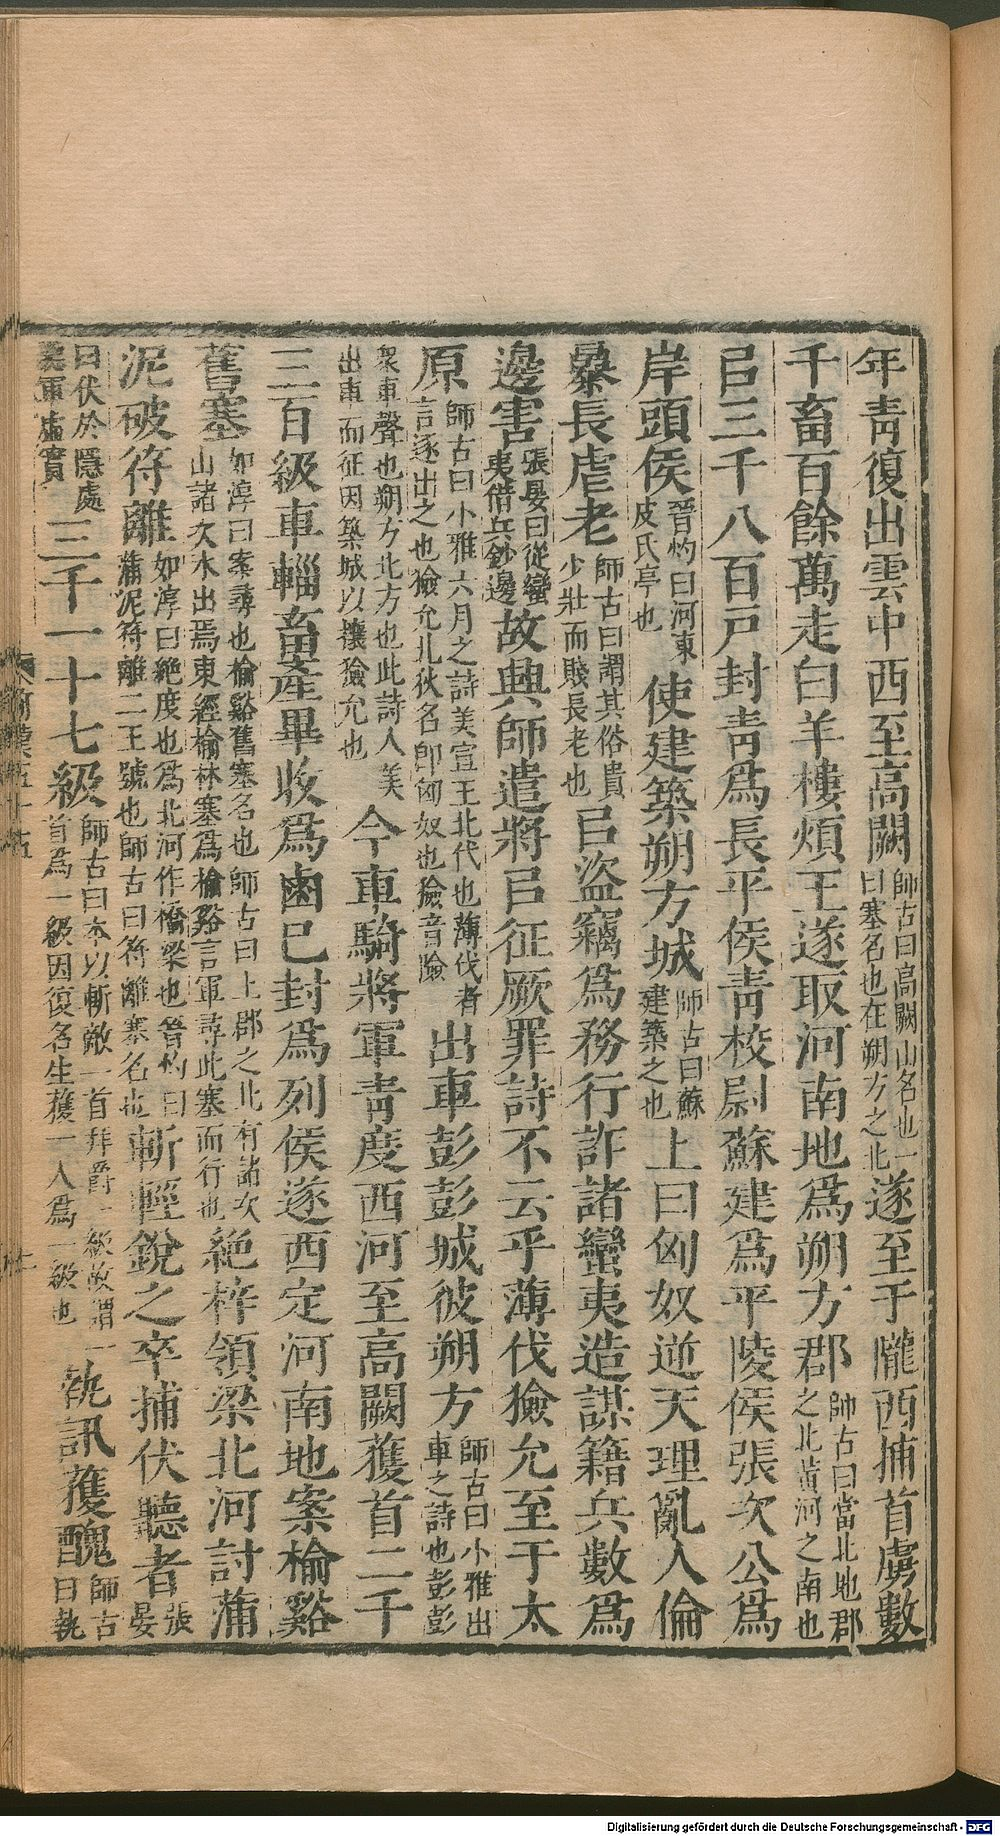 年靑復出雲中西至高闕師古曰高闕山名也一曰塞名也在朔方之北遂至于隴西捕首虜數
千畜百餘萬走白羊樓煩王遂取河南地爲朔方郡師古曰當北地郡之北黃河之南也
㠯三千八百戸封靑爲長平侯靑校尉蘇建爲平陵侯張次公爲
岸頭侯晉灼曰河東皮氏亭也使建築朔方城師古曰蘇建築之也上曰匈奴逆天理亂人倫
暴長虐老師古曰謂其俗貴少壯而賤長老也㠯盜竊爲務行詐諸蠻夷造謀籍兵數爲
邊害張晏曰從蠻夷借兵鈔邊故興師遣將㠯征厥罪詩不云乎薄伐獫允至于太
原師古曰小雅六月之詩美宣王北伐也薄伐者言逐出之也獫允北狄名卽匈奴也獫音險出車彭彭城彼朔方師古曰小雅出車之詩也彭彭
衆車聲也朔方北方也此詩人美出車而征因築城以攘獫允也今車騎將軍靑度西河至高闕獲首二千
三百級車輜畜產畢收爲鹵已封爲列侯遂西定河南地案榆谿
舊塞如淳曰案尋也榆谿舊塞名也師古曰上郡之北有諸次山諸次水出焉東經榆林塞爲榆谿言軍尋此塞而行也絕梓領梁北河討蒲
泥破符離如淳曰絕度也爲北河作橋梁也晉灼曰蒲泥符離二王號也師古曰符離塞名也斬輕銳之卒捕伏聽者張晏
曰伏於隱處聽軍虛實三千一十七級師古曰本以斬敵一首拜爵一級故謂一首爲一級因復名生獲一人爲一級也執訊獲醜師古曰執
Digitalisierung gefördert durch die Deutsche Forschungsgemeinschaft - DFG